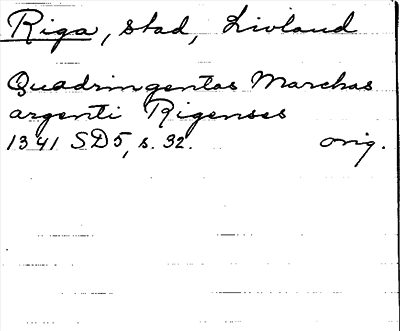 Riga, stad, Livland
Quadringentas Marchas
argenti Rigenses
1341 SD5, s. 32. orig.